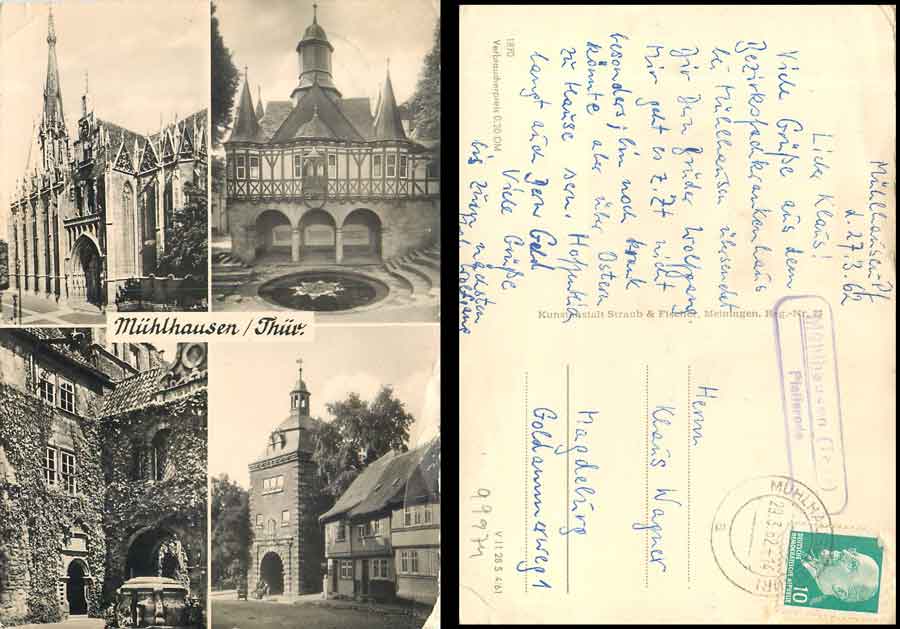 Mühlhausen / Thür.
Mühlhausen-Pf
d. 27.3.62
Lieber Klaus!
Viele Grüße aus dem
Bezirksfachkrankenhaus
bei Mühlhausen übersendet
Dir Dein Bruder Wolfgang.
Mir geht es z. Zt nicht
besonders, bin noch krank
könnte aber über Ostern
zu Hause sein. Hoffentlich
langt auch Dein Geld
Viele Grüße
bis zum nächsten
Wolfgang
1870
Verbraucherpreis 0,20 DM
Kunstanstalt Straub & Fischer, Meiningen, Reg.-Nr.
V 11 28 S 4/61
Herrn
Klaus Wagner
Magdeburg
Goldammerweg 1
99974
Mühlhausen (Thür)
Pfafferode
MÜHLHAUSEN
29.3.62
a
DEUTSCHE
DEMOKRATISCHE
REPUBLIK
10